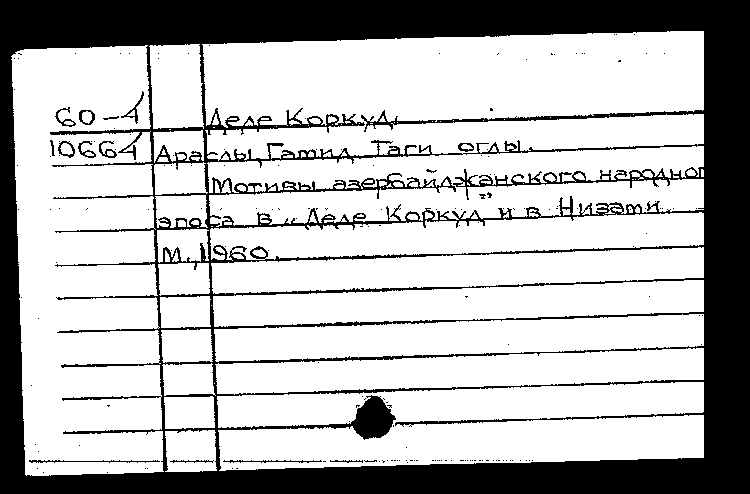 60-4 Деде Коркуд.
10664 Араслы, Гамид Таги оглы.
Мотивы азербайджанского народног
эпоса в „Деде Коркуд" и в Низами.
М., 1960.